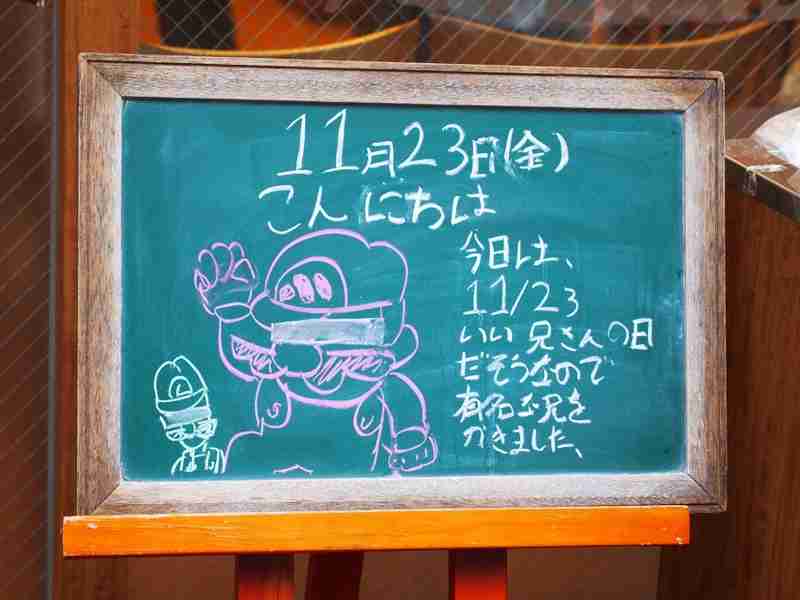 11月23日(金)
こんにちは
今日は、
11/23
いい兄さんの日
だそうなので
有名な兄を
かきました、